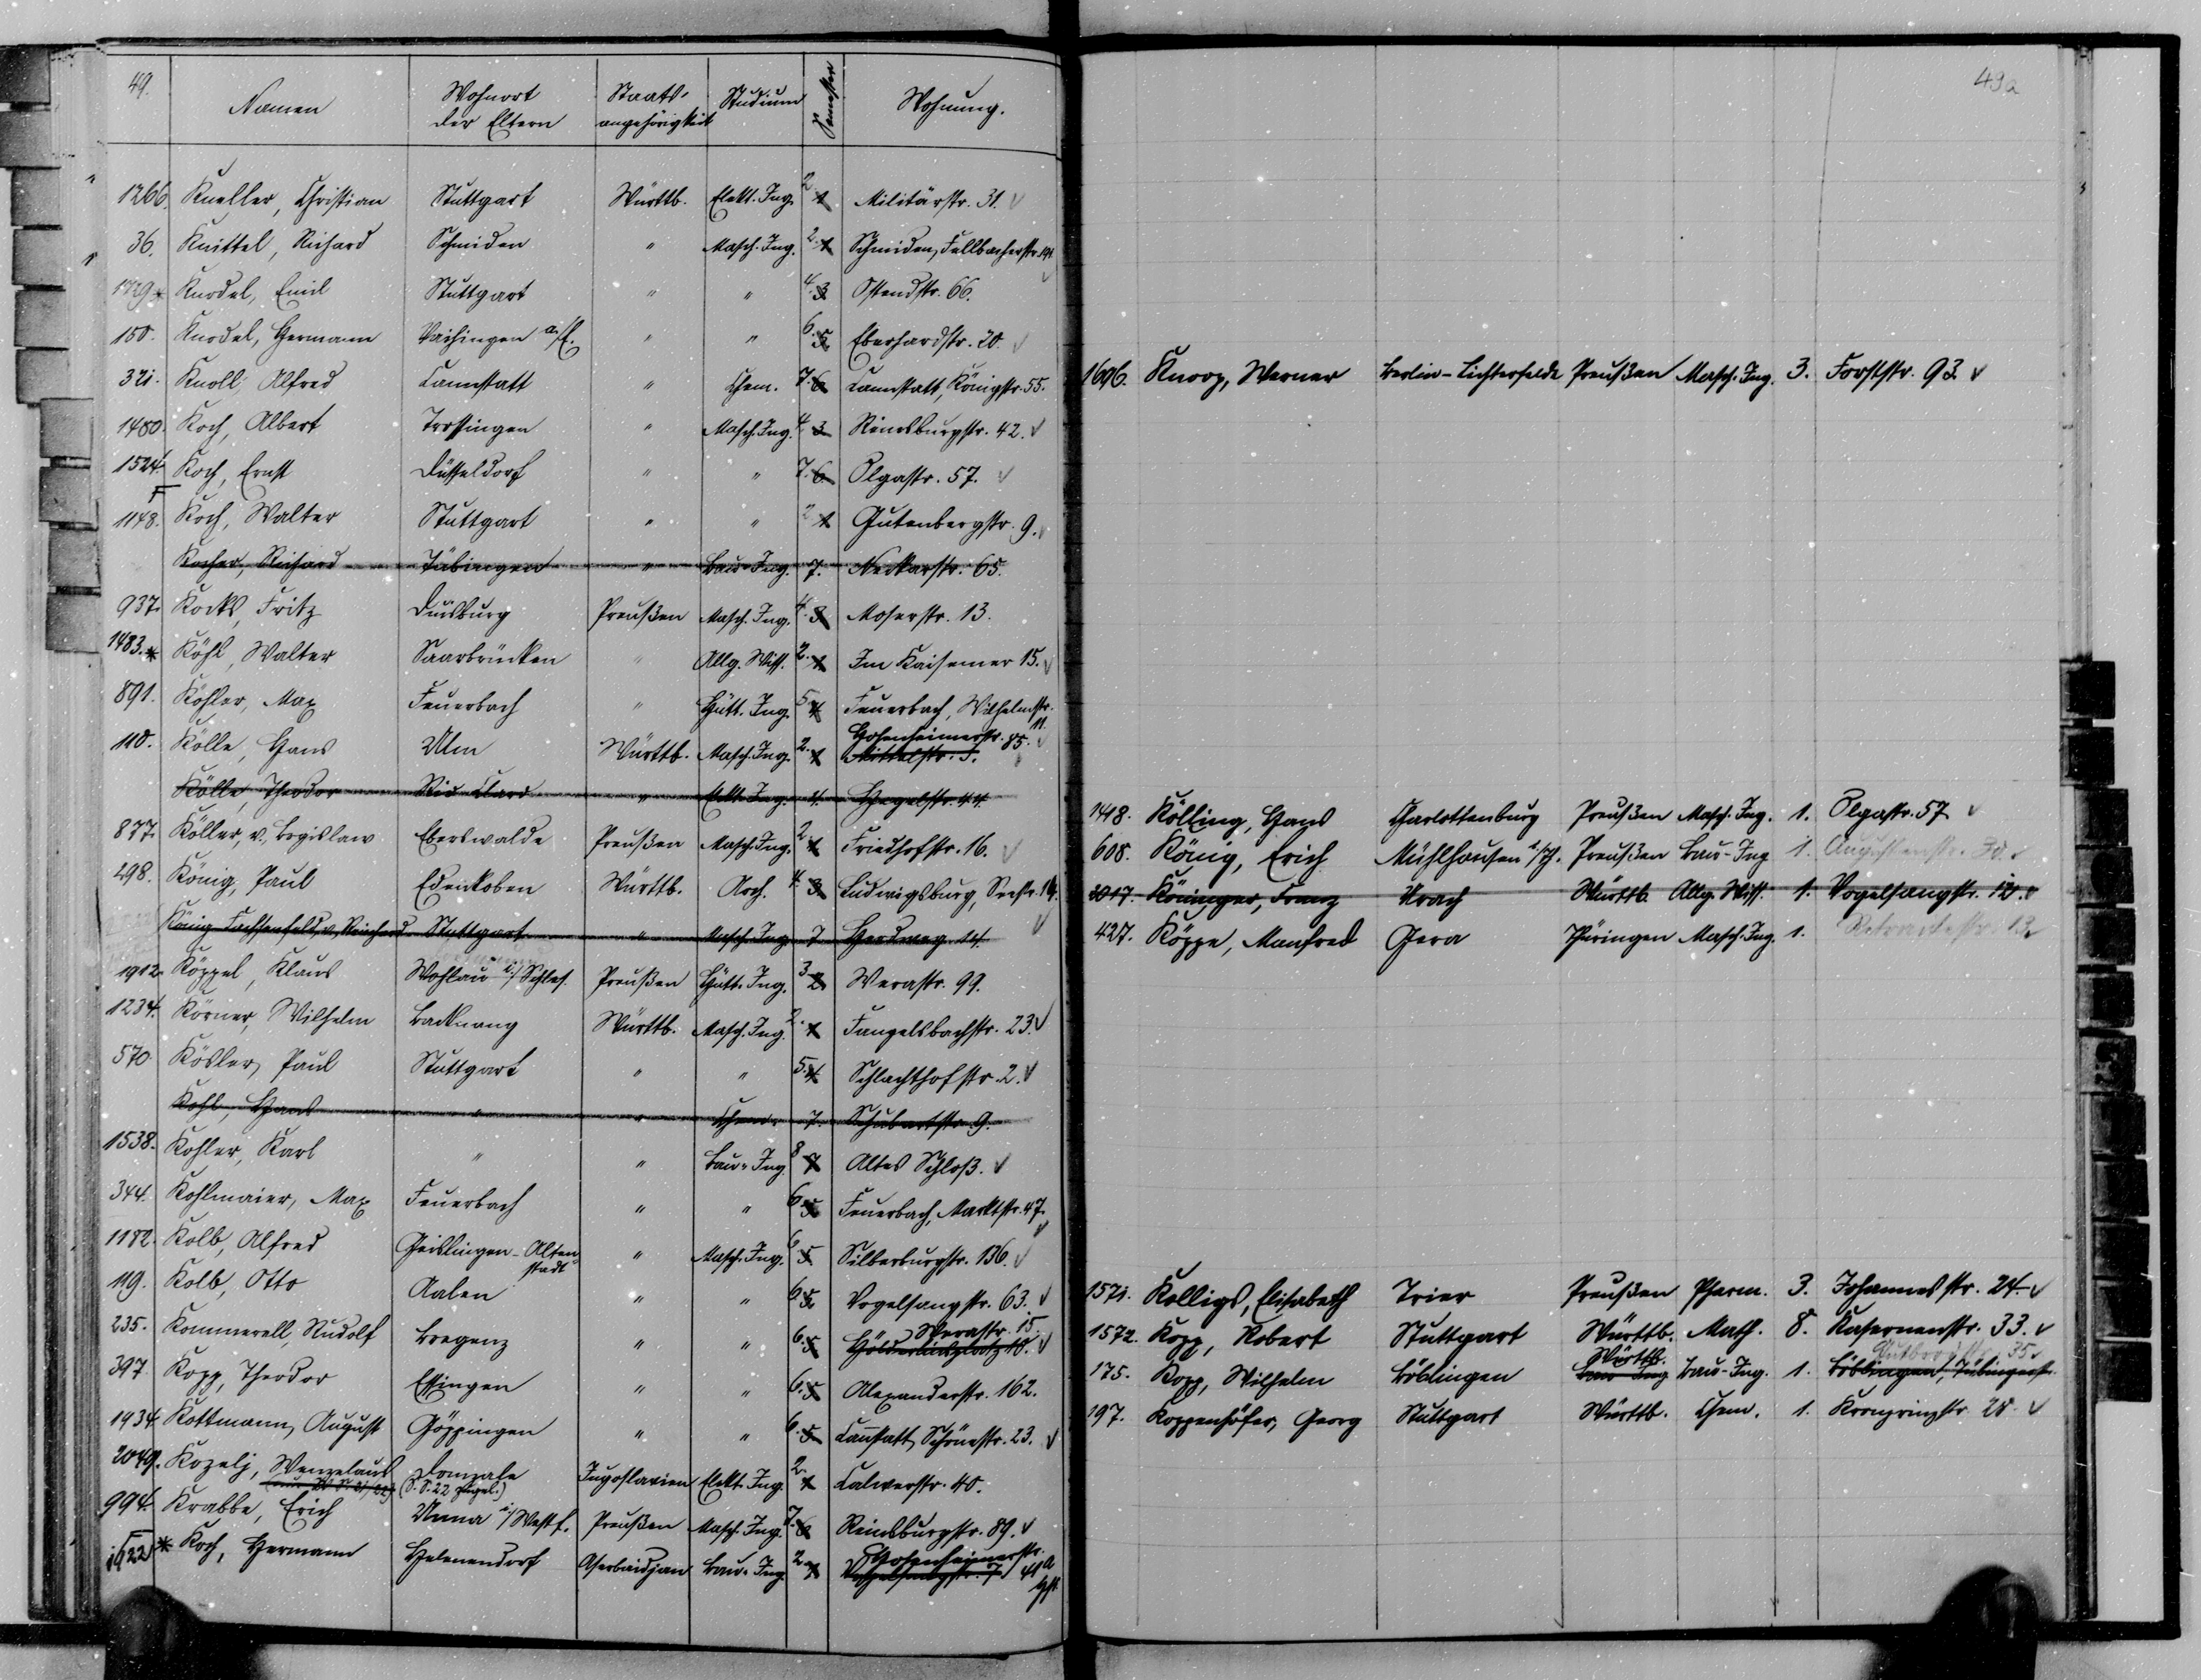 49.
Namen Wohnort der Eltern Staats-angehörigkeit Studium Semester Wohnung.
1266. Kneller, Christian Stuttgart Württb. Elekt. Ing. 2. 1 Militärstr. 31. ✓
36. Knittel, Richard Schmiden " Masch. Ing. 2. 1 Schmiden, Fellbacherstr.
1729* Knodel, Emil Stuttgart " " 4. 3 Ostendstr. 66.
150. Knodel, Hermann Vaihingen a/E. " " 6. 5 Eberhardstr. 20. ✓
321. Knoll, Alfred Cannstatt " Chem. 7. 6 Cannstatt, Königstr. 55.
1480. Koch, Albert Trossingen " Masch. Ing. 4. 3 Reinsburgstr. 42. ✓
1524. Koch, Ernst Düsseldorf " " 7. 6 Olgastr. 57. ✓
1148. Koch, Walter Stuttgart " " 2 1 Gutenbergstr. 9.
Kocher, Richard Tübingen " Bau-Ing. 7. Neckarstr. 65.
937. Kocks, Fritz Duisburg Preußen Masch. Ing. 4. 3 Moserstr. 13.
1483.* Köhl, Walter Saarbrücken " Allg. Wiss. 2. 1 Im Kaisemer 15. ✓
891. Köhler, Max Feuerbach " Hütt. Ing. 5. 4 Feuerbach, Wilhelmstr. 11.
110. Kölle, Hans Ulm Württb. Masch. Ing. 2. 1 Hohenheimerstr. 85. ✓
Kölle, Theodor " Elekt. Ing. 4. Hegelstr. 44
877. Köller, v. Bogislaw Eberswalde Preußen Masch. Ing. 2. 1 Friedhofstr. 16. ✓
498. König, Paul Edenkoben Württb. Arch. 4. 3 Ludwigsburg, Seestr. 14.
König-Fachsenfeld, v. Reinhard Stuttgart " Masch. Ing. 7 Herdweg 14 ✓
1912. Köppel, Klaus Wohlau i./Schles. Preußen Hütt. Ing. 3 2 Werastr. 99.
1234. Körner, Wilhelm Backnang Württb. Masch. Ing. 2. 1 Fangelsbachstr. 23. ✓
570. Kösler, Paul Stuttgart " " 5. 4 Schlachthofstr. 2. ✓
Kohl, Hans " " Chem. 7. Schubartstr. 9.
1538. Kohler, Karl " " Bau-Ing. 8 7 Altes Schloß. ✓
344. Kohlmaier, Max Feuerbach " " 6. 5. Feuerbach, Marktstr. 47. ✓
1182. Kolb, Alfred Geislingen-Altenstadt " Masch. Ing. 6 5 Silberburgstr. 136. ✓
119. Kolb, Otto Aalen " " 6. 5. Vogelsangstr. 63. ✓
235. Kommerell, Rudolf Bregenz " " 6. 5 Hölderlinsplatz 10. Werastr. 15 ✓
397 Kopp, Theodor Essingen " " 6. 5 Alexanderstr. 162.
1934. Kottmann, August Göppingen " " 6. 5 Canstatt, Schönestr. 23. ✓
2049. Kozelj, Wenzelaus Domzale Jugoslavien Elekt. Ing. 2. 1 Calwerstr. 40.
(nur W. S. 21/22) (S. S. 22 )
994. Krabbe, Erich Unna i/Westf. Preußen Masch. Ing. 7. 6 Reinsburgstr. 89. ✓
1622 * Koch, Hermann Helenendorf Aserbaidjan Bau-Ing. 2. 1 Vogelsangstr. 7 Hohenheimerstr. 41a
49a
1696. Knoop, Werner Berlin-Lichterfelde Preußen Masch. Ing. 3. Forststr. 93. ✓
1418. Kölling, Hans Charlottenburg Preußen Masch. Ing. 1. Olgastr. 57 ✓
608. König, Erich Mühlhausen i/Th. Preußen Bau-Ing 1. Augustenstr. 30. ✓
2017. Köninger, Franz Urach Württb. Allg. Wiss. 1. Vogelsangstr. 12.
427. Köppe, Manfred Gera Thüringen Masch. Ing. 1. Rotwaldstr. 13.
1571. Kolligs, Elisabeth Trier Preußen Pharm. 3. Johannesstr. 24. ✓
1572. Kopp, Robert Stuttgart Württb. Math. 8. Kasernenstr. 33. ✓
175. Kopp, Wilhelm Böblingen Bau-Ing Württb. Bau-Ing. 1. Böblingen, Tübingerstr. 35. ✓
197. Koppenhöfer, Georg Stuttgart Württb. Chem. 1. Kronprinzstr. 28. ✓